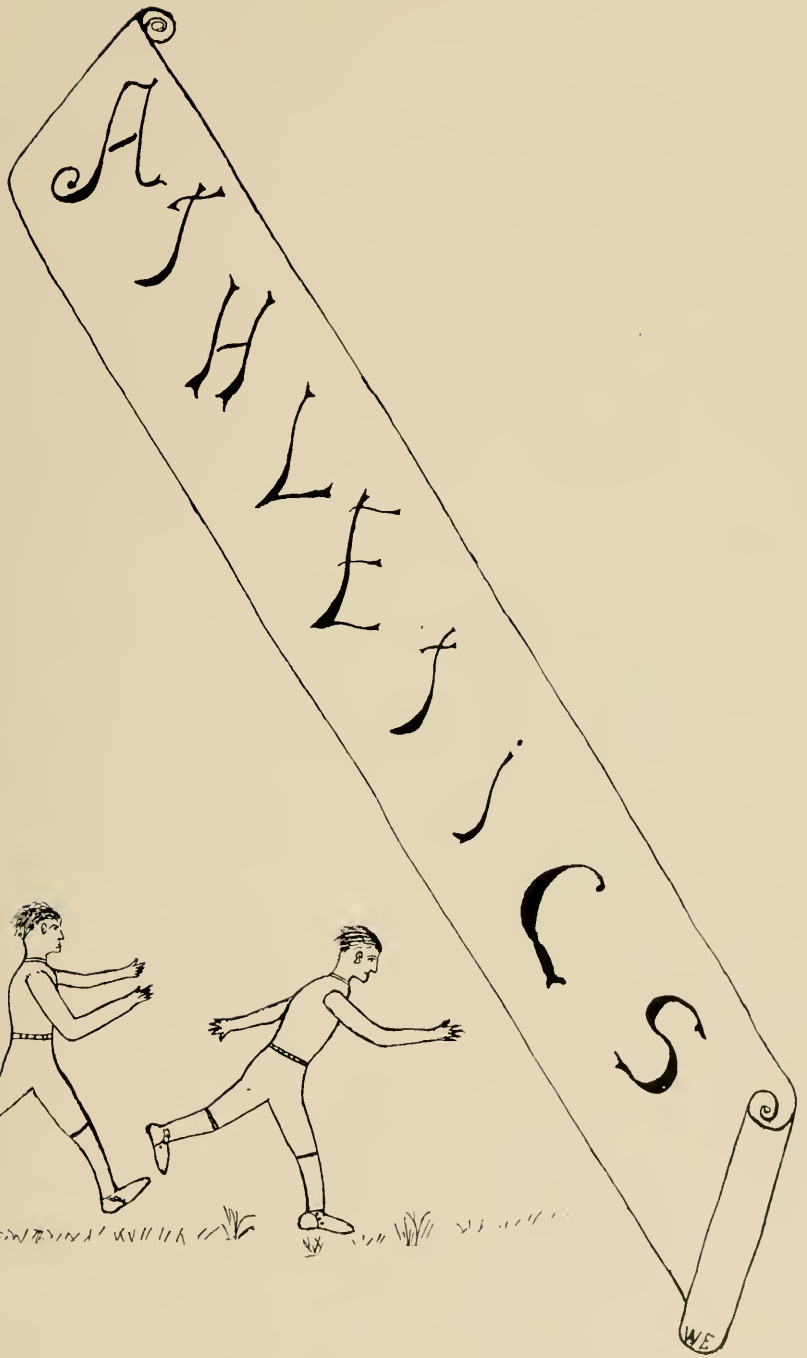 ATHLETiCS
WE